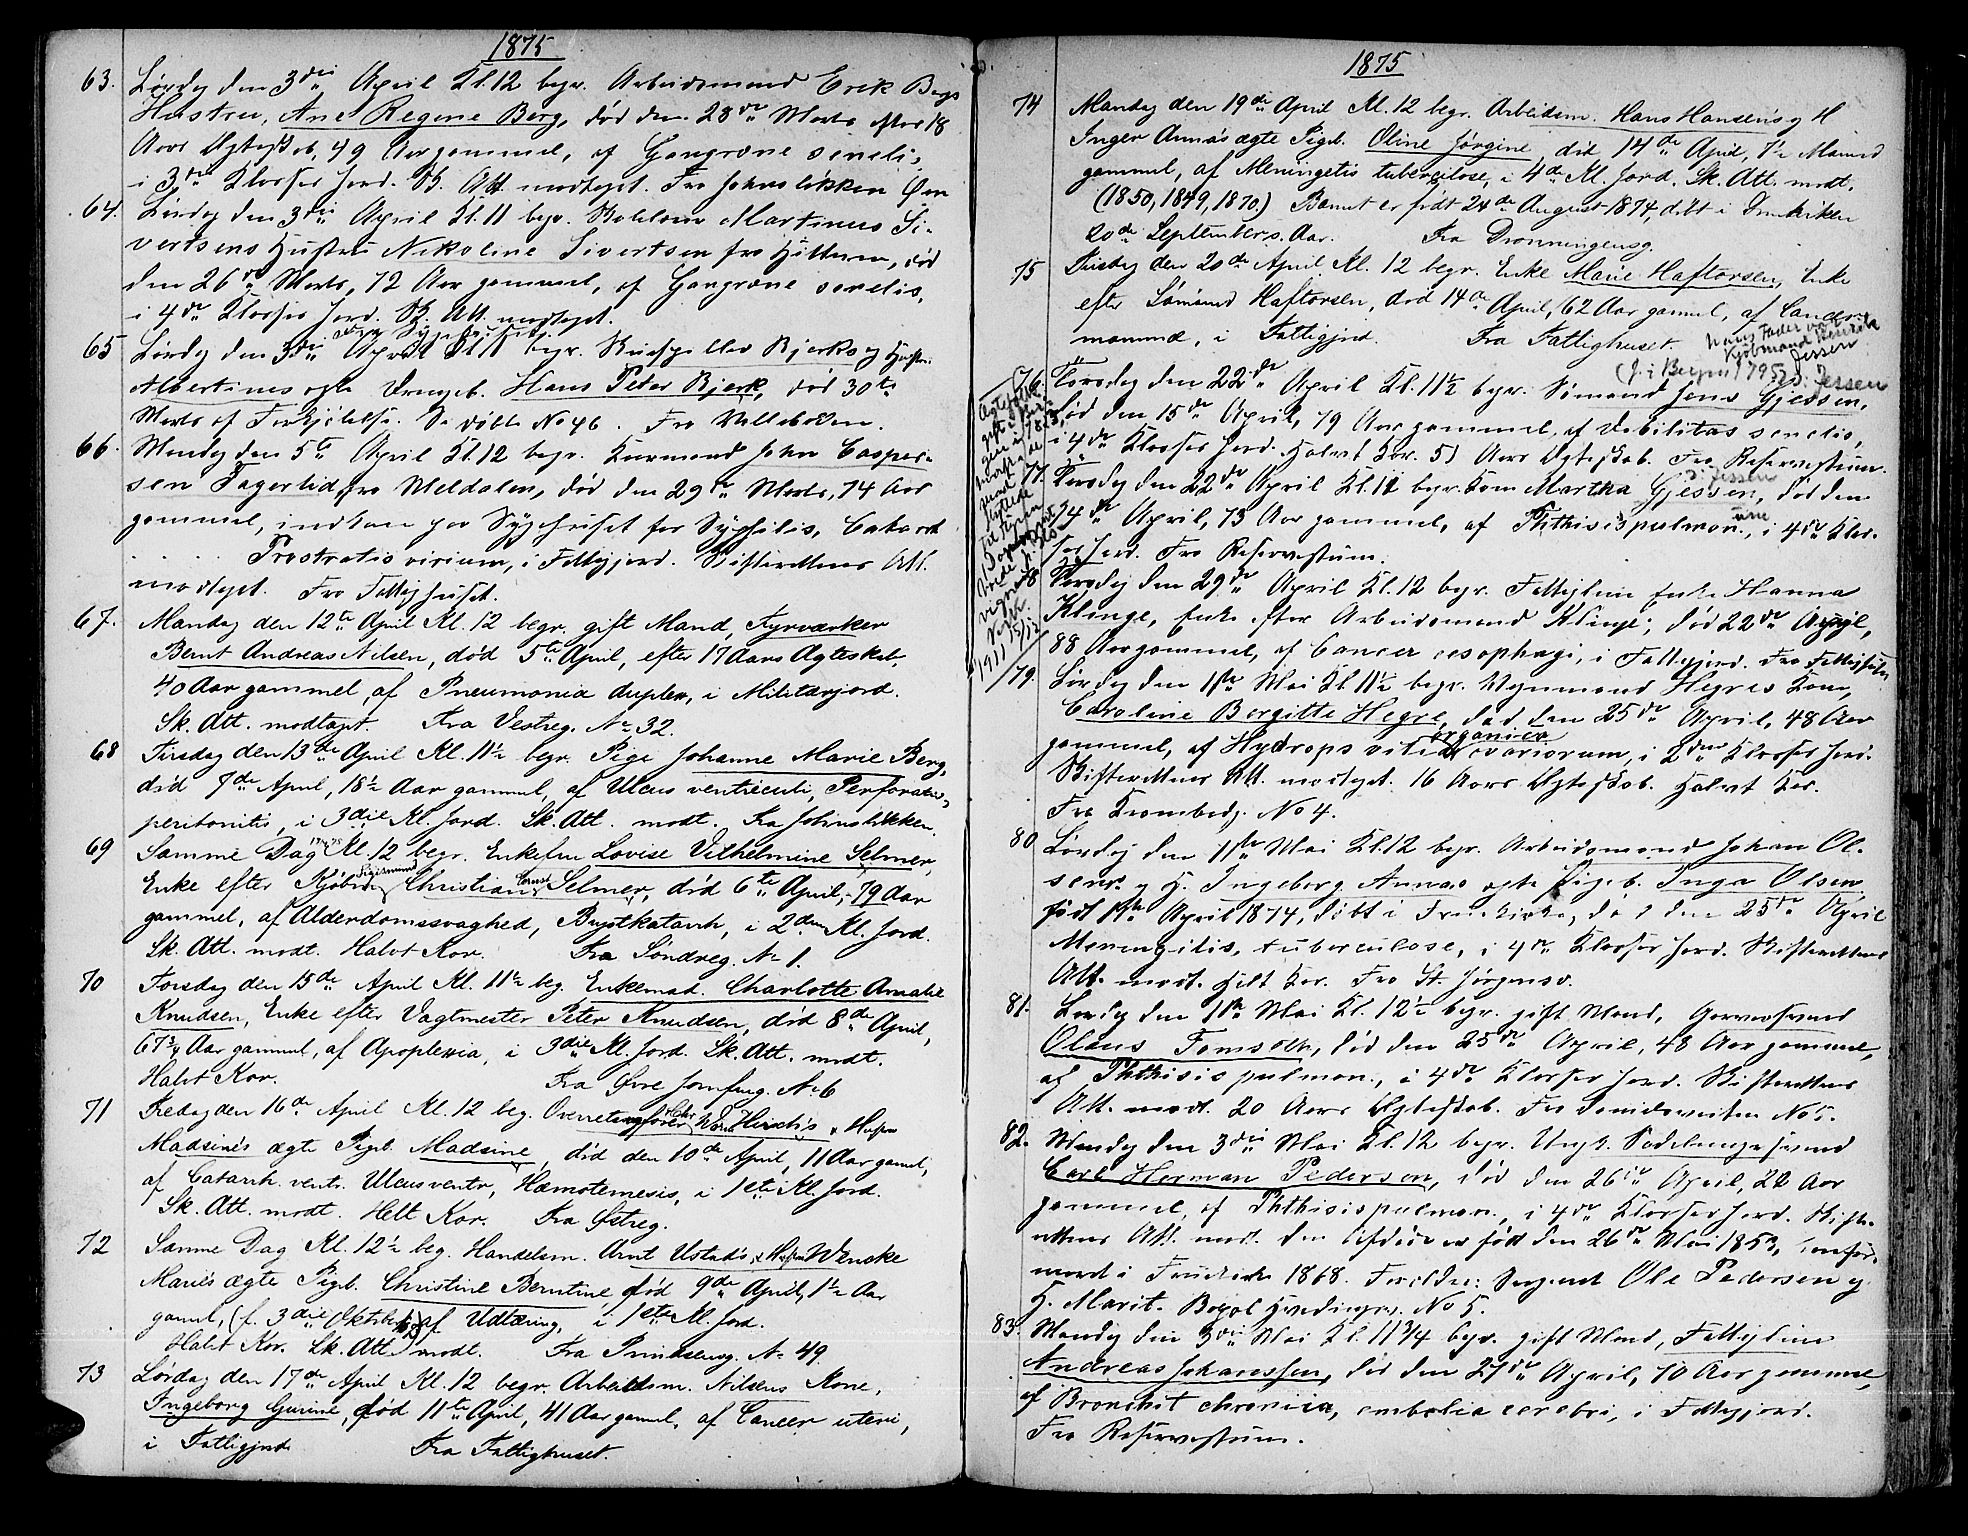 1875
63. Lørdag den 3die April Kl. 12 begr. Arbeidsmand Erik Bergs
Hustru, Ane Regine Berg, død den 28de Marts efter 18
Aars Ægteskab, 49 Aar gammel, af Gangræne senelis,
i 3die Klasses Jord. Sk. Att. modtaget. Fra Johnsløkken
64. Lørdag den 3die April Kl. 11 begr. Martinus Si-
vertsens Hustru Nikoline Sivertsen fra Hitteren, død
den 26de Marts, 72 Aar gammel, af Gangræne senelis,
i 4de Klasses Jord. Sk. Att. modtaget.
65 Lørdag den 3die April Kl. 11 begr. Bjerks og Hustru
Albertines ægte Drengeb. Hans Peder Bjerk, død 30te
Marts af Forkjølelse. Se døbte No 46. Fra Vollabakken.
66. Mandag den 5te April Kl. 12 begr. Kurmand John Casper-
sen Fagerlid, fra Meldalen, død den 29de Marts, 74 Aar
gammel, indkom paa Sygehuset for Syphilis, Catarrh
Prostratio virium, i Fattigjord. Skifterettens Att.
modtaget. Fra Fattighuset.
67. Mandag den 12te April Kl. 12 begr. gift Mand, Fyrværker
Bernt Andreas Nilsen, død 5te April, efter 17 Aars Ægteskab,
40 Aar gammel, af Pneumonia duplex, i Militærjord.
Sk. Att. modtaget. Fra Vestreg. No 32.
68 Tirsdag den 13de April Kl. 11½ begr. Pige Johanne Marie Berg,
død 7de April, 18½ Aar gammel, af Ulcus ventriculi, Perforativ-
peritonitis, i 3die Kl. Jord. Sk. Att. modt. Fra Johnsløkken.
69 Samme Dag Kl. 12 begr. Enkefru Lovise Vilhelmine Selmer,
Enke efter Kjøbm. Sigismund Christian Ernst Selmer, død 6te April, 79 Aar
gammel, af Alderdomssvaghed, Brystkatarrh, i 2den Kl. Jord.
Sk. Att. modt. Halvt Kor. Fra Søndreg. No 1.
70 Torsdag den 15de April Kl. 11½ beg. Enkemad. Charlotte Amalie
Knudsen, Enke efter Vagtmester Peter Knudsen, død 8de April,
67¾ Aar gammel, af Apoplexia, i 3die Kl. Jord. Sk. Att. modt.
Halvt Kor. Fra Øvre Jomfrug. No 6
71 Fredag den 16de April Kl. 12 beg. Overretssagfører Hirsch's & Hustru
Madsine's ægte Pigeb. Madsine, død den 10de April, 11 Aar gaml,
af Catarrh. ventr. Ulcus ventr, Hæmotemesis, i 1ste Kl. Jord.
Sk. Att. modt. Helt Kor. Fra Østreg.
72 Samme Dag Kl. 12½ beg. Handelsm. Arnt Ustad's & Hustru Wenske
Marie's ægte Pigb. Christine Berntine, død 9de April, 1½ Aar
gaml, (f. 3die Oktober 73) af Udtæring, i 1ste Kl. Jord.
Halvt Kor. Sk. Att. modt. Fra Prindseng. No 49.
73 Lørdag den 17de April Kl. 12 begr. Arbeidsm. Nilsens Kone,
Ingeborg Gurine, død 11te April, 41 Aar gaml., af Cancer uteri,
i Fattigjord. Fra Fattighuset.
1875
74 Mandag den 19de April Kl. 12 begr. Arbeidsm. Hans Hansens og H
Inger Anna's ægte Pigeb. Oline Jørgine død 14de April, 7½ Maaned
gammel, af Meningitis tuberculose, i 4de Kl. Jord. Sk. Att. modt.
(1850, 1849, 1870.) Barnet er født 24de August 1874, døbt i Fruekirken
20de September s. Aar. Fra Dronningensg.
75 Tirsdag den 20de April Kl. 12 begr. Enke Marie Haftorsen, Enke
efter Sømand Haftorsen, død 14de April, 62 Aar gammel, af Cancer
mammæ, i Fattigjord. Fra Fattighuset.
Hans Fader var
Kjøbmand Henrik
Jessen
(f. i Bergen 1795) ɔ: Jessen
76. Torsdag den 22de April Kl. 11½ begr. Sømand Jens Gjessen,
død den 15de April, 79 Aar gammel, af Debilitas senelis,
i 4de Klasses Jord. Halvt Kor. 51 Aars Ægteskab. Fra Reservestuen.
ɔ: Jessen
77. Torsdag den 22de April Kl. 11 begr. Kone Martha Gjessen, død den
24de April, 73 Aar gammel, af Phthisis pulmon., i 4de Klas-
ses Jord. Fra Reservestuen.
78 Torsdag den 29de April Kl. 12 begr. Fattiglem Enke Hanna
Klinge, Enke efter Arbeidsmand Klinge, død 22de April,
88 Aar gammel, af Cancer oesophagi, i Fattigjord. Fra Fattighuset
79. Lørdag den 1ste Mai Kl. 11½ begr. Vognmand Hegres Kone,
Caroline Bergitte Hegre, død den 25de April, 48 Aar
gammel, af Hydrops vitia organica ovariorum, i 2den Klasses Jord.
Skifterettens Att. modtaget. 16 Aars Ægteskab. Halvt Kor.
Fra Krambodg. No 4.
80. Lørdag den 1ste Mai Kl. 12 begr. Arbeidsmand Johan Ol-
sens og H. Ingeborg Annas ægte Pigeb. Inga Olsen,
født 1ste April 1874, døbt i Fruekirke, død den 25de April
Meningitis tuberculose, i 4de Klasses Jord. Skifterettens
Att. modt. Helt Kor. Fra St. Jørgensv.
81. Lørdag den 1ste Mai Kl. 12½ begr. gift Mand, Garversvend
Olaus Tomsoth, død den 25de April, 48 Aar gammel,
af Phthisis pulmon., i 4de Klasses Jord. Skifterettens
Att. modt. 20 Aars Ægteskab. Fra No 5.
82. Mandag den 3die Mai Kl. 12 begr. Ungk. Sadelmagersvend
Carl Herman Pedersen, død den 26de April, 22 Aar
gammel, af Phthisis pulmon., i 4de Klasses Jord. Skifte-
rettens Att. modt. Den Afdøde er født den 26de Mai 1853, konfir-
meret i Fruekirke 1868. Forældre: Sergeant Ole Pedersen og
H. Marit. No 5.
83. Mandag den 3die Mai Kl. 11¾ begr. gift Mand, Fattiglem
Andreas Johanssen, død den 27de April, 70 Aar gammel,
af Bronchit chronica, embolia cerebri, i Fattigjord.
Fra Reservestuen.